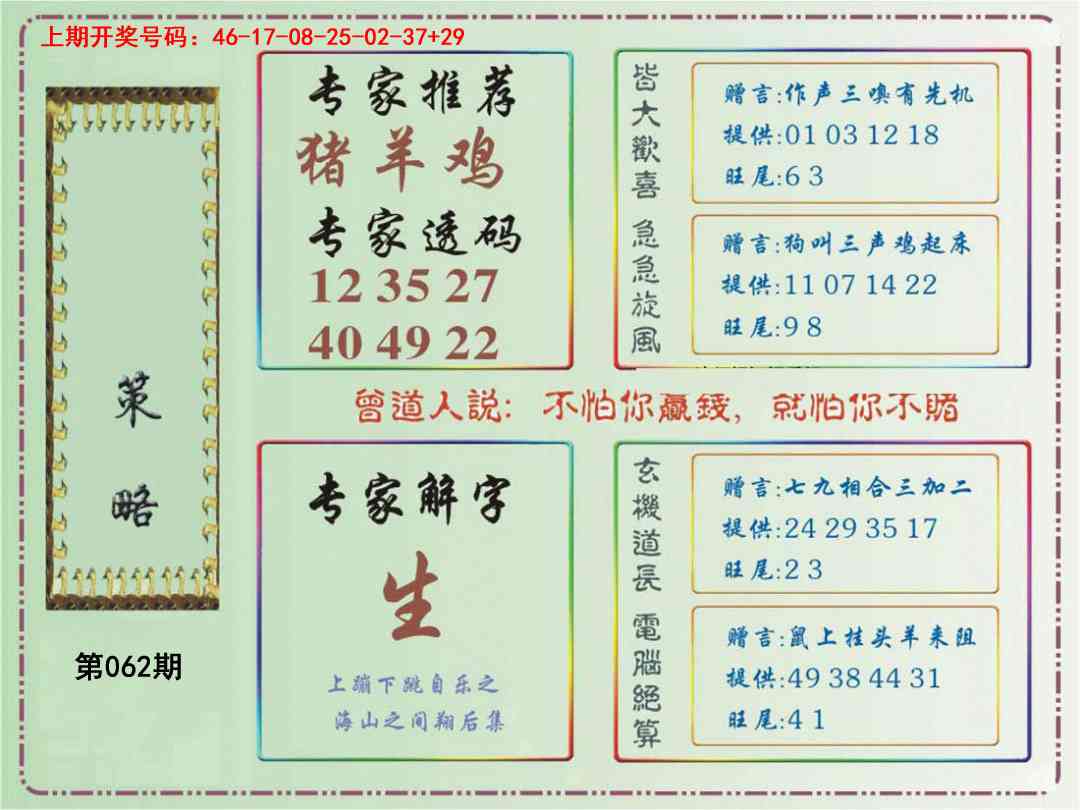 上期开奖号码：46-17-08-25-02-37+29
策
略
第062期
专家推荐
猪羊鸡
专家透码
12 35 27
40 49 22
皆大歡喜
赠言:作声三喚有先机
提供:01 03 12 18
旺尾:6 3
急急旋風
赠言:狗叫三声鸡起床
提供:11 07 14 22
旺尾:9 8
曾道人説：不怕你贏錢，就怕你不賭
专家解字
生
上蹦下跳自乐之
海山之间翔后集
玄機道長
赠言:七九相合三加二
提供:24 29 35 17
旺尾:2 3
電腦絕算
赠言:鼠上挂头羊来阻
提供:49 38 44 31
旺尾:4 1